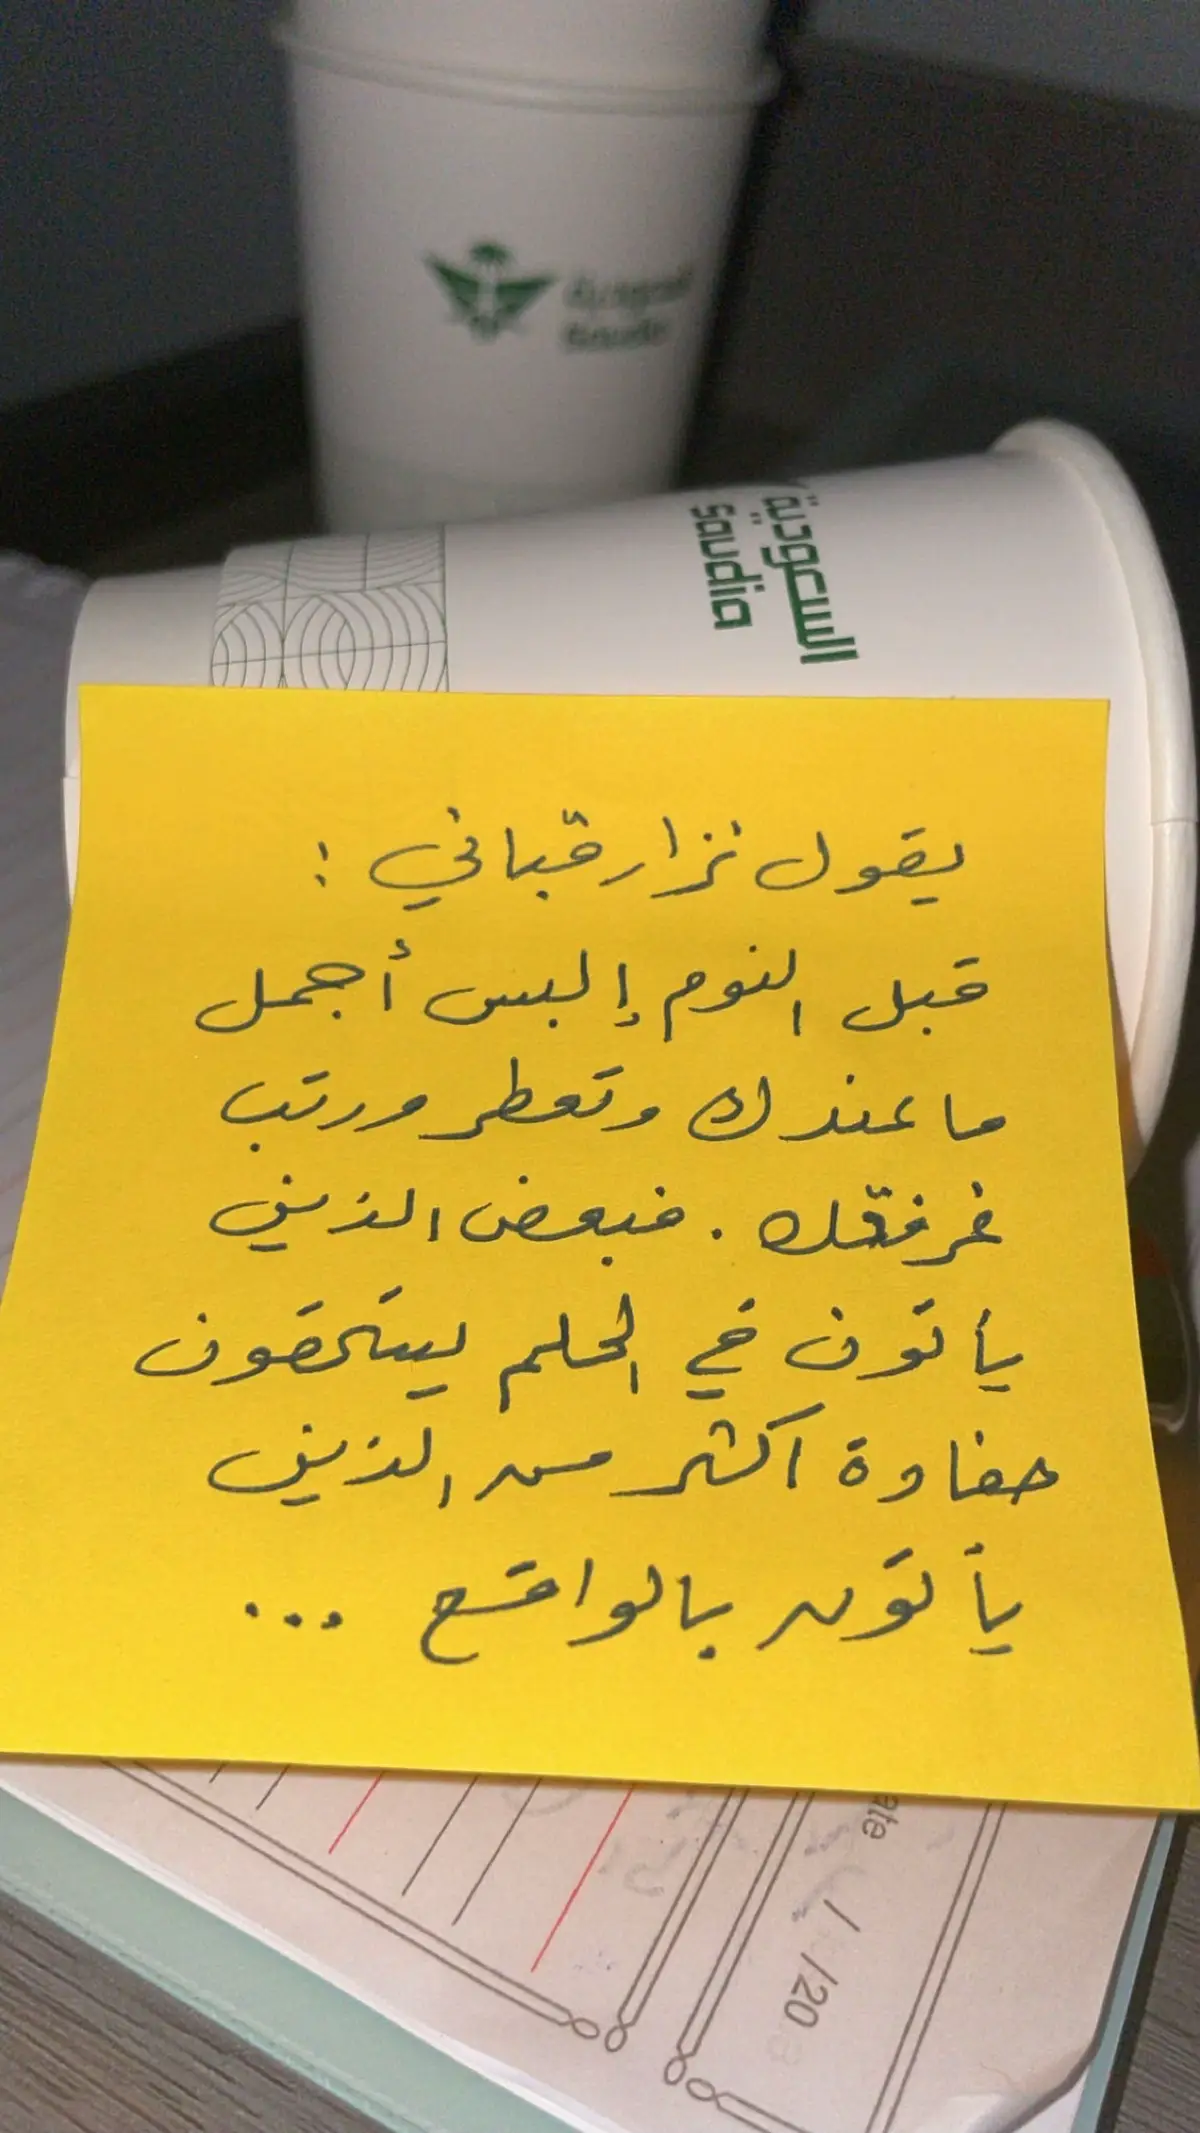 السعودية
saudia
السعودية
saudia
يقول نزار قباني :
قبل النوم إلبس أجمل
ما عندك وتعطر ورتب
غرفتك . فبعض الذين
يأتون في الحلم يستحقون
حفاوة اكثر من الذين
يأتون بالواقع ...
ate
/ /20